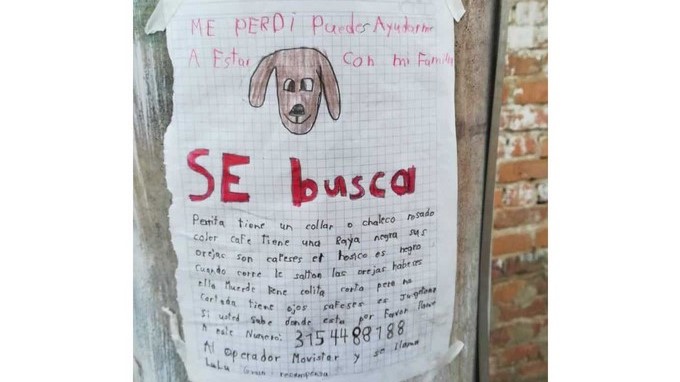 ME PERDÍ Puedes Ayudarme
A Estar con mi Familia
SE busca
Perrita tiene un collar o chaleco rosado
coler cafe tiene una Raya negra sus
orejas son cafeses el hosico es negro
Cuando corre le saltan las orejas habeces
ella Muerde tiene colita corta pero no
Cortada tiene ojos cafeses es Juguetona
Si usted sabe donde esta por Favor llame
A este Numero: 3154488188
Al operador Movistar y se llama
LuLu Gran recompensa